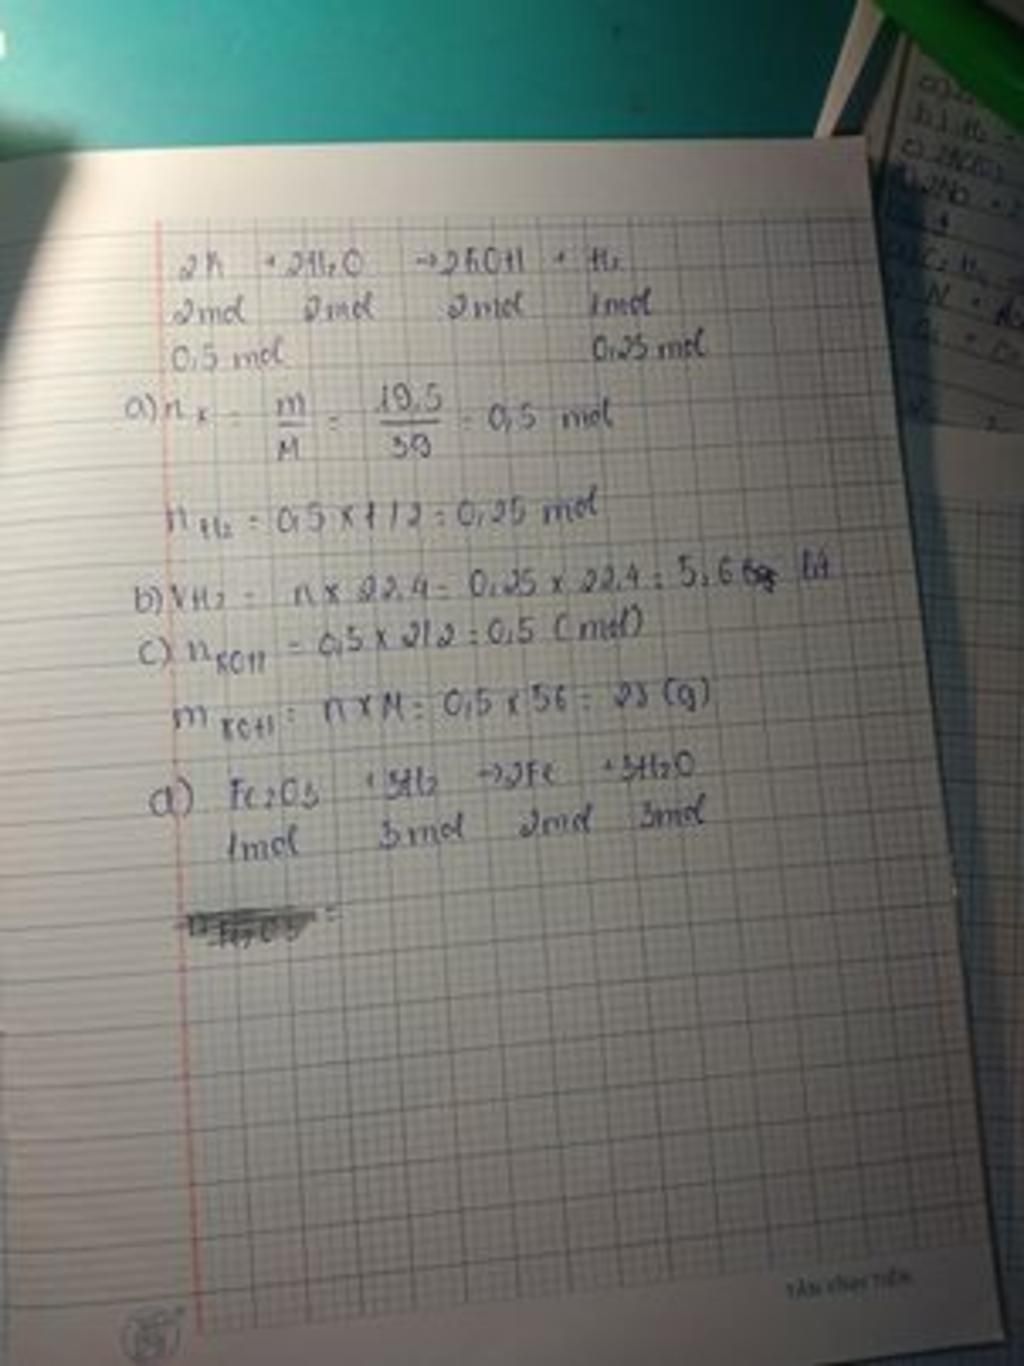 2K + 2H₂O → 2KOH + H₂
2mol 2mol 2mol 1mol
0,5 mol 0,25 mol
a) n K = m/M = 19,5/39 = 0,5 mol
n H₂ = 0,5 x 1/2 = 0,25 mol
b) VH₂ = n x 22,4 = 0,25 x 22,4 = 5,6 lít
c) n KOH = 0,5 x 2/2 = 0,5 (mol)
m KOH = n x M = 0,5 x 56 = 23 (g)
d) Fe₂O₃ + 3H₂ → 2Fe + 3H₂O
1mol 3mol 2mol 3mol